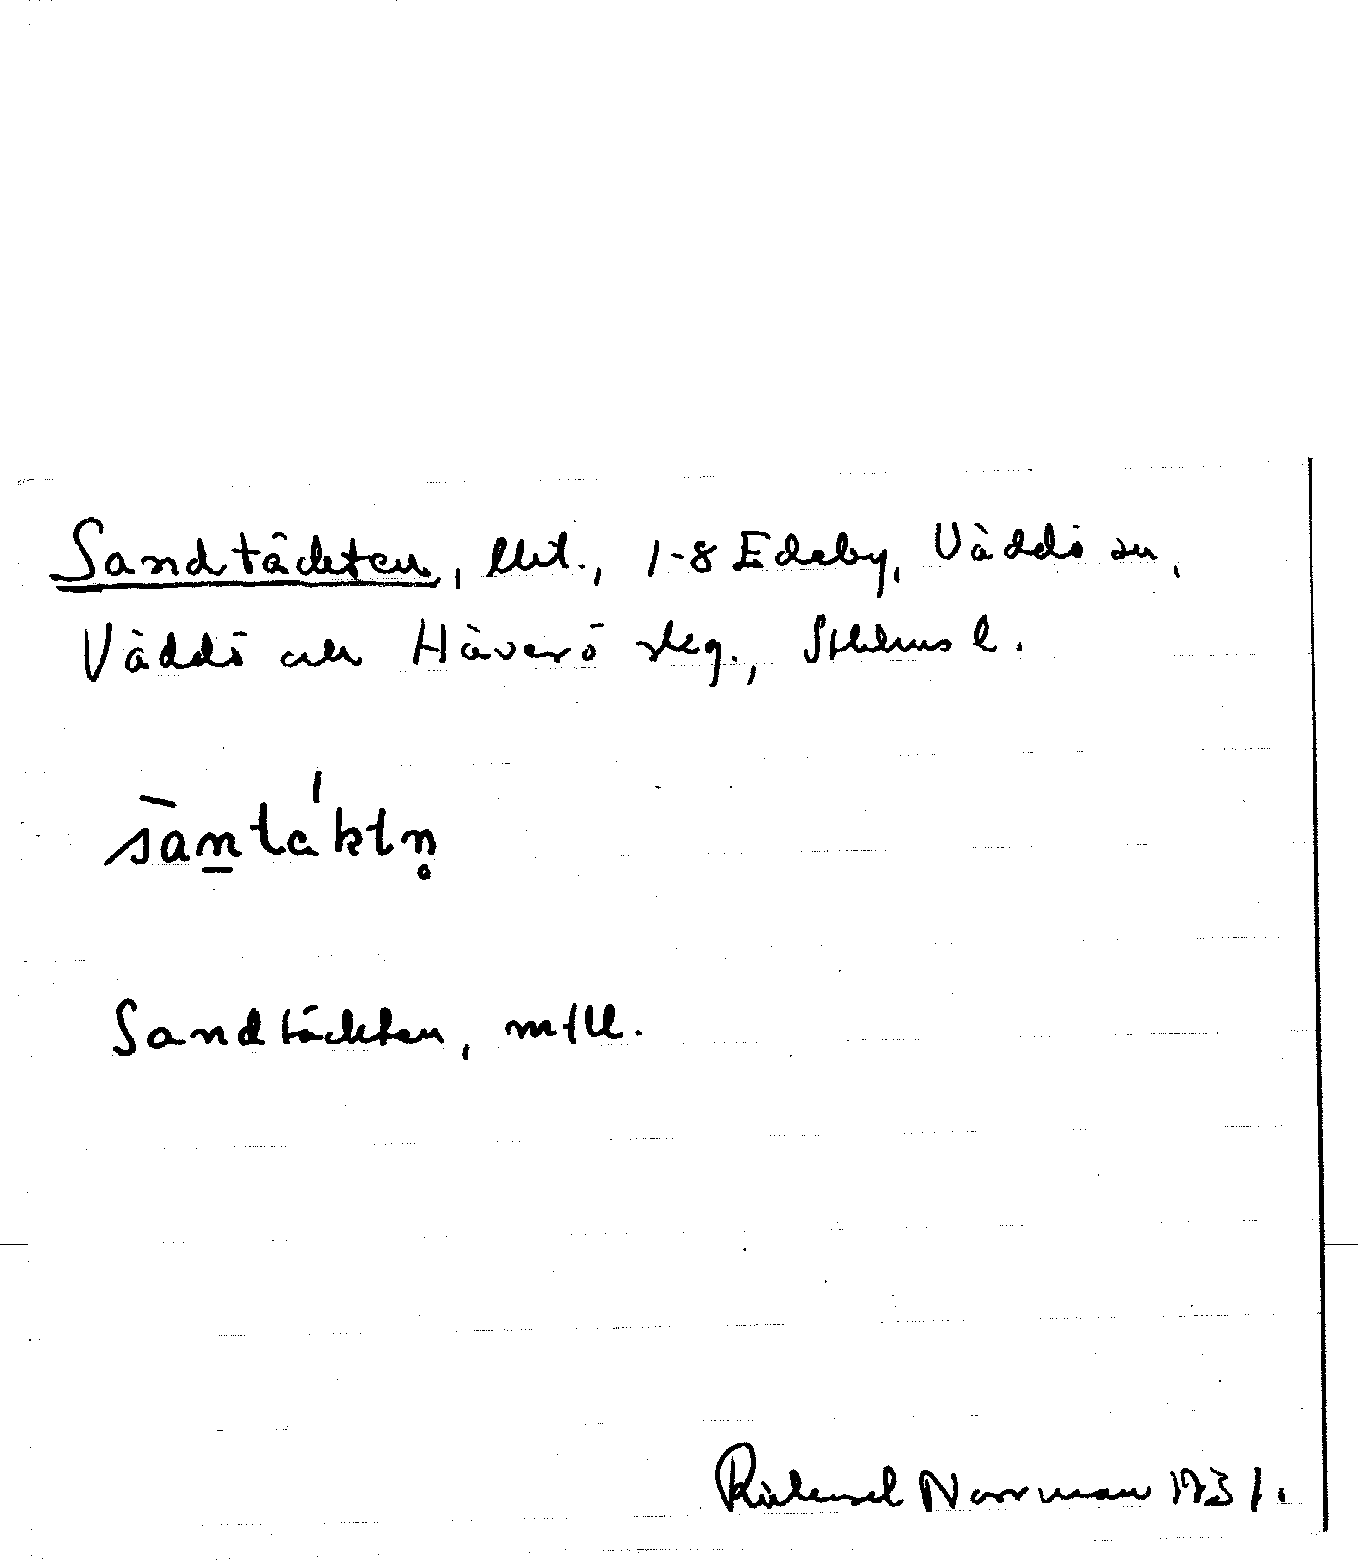 Sandtäckten, llit., 1-8 Edeby, Väddö sn,
Väddö och Häverö skg., Sthlms l.
sàntäktn̥
Sandtäckten, mtll.
Rickard Norrman 1931.